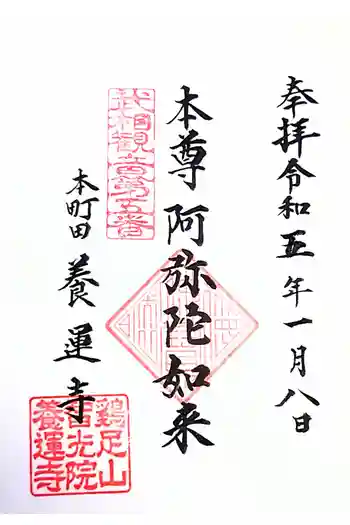 奉拝令和五年一月八日
本尊阿弥陀如来
武相観音第五番
本町田養運寺
鶏足山
吉光院
養運寺